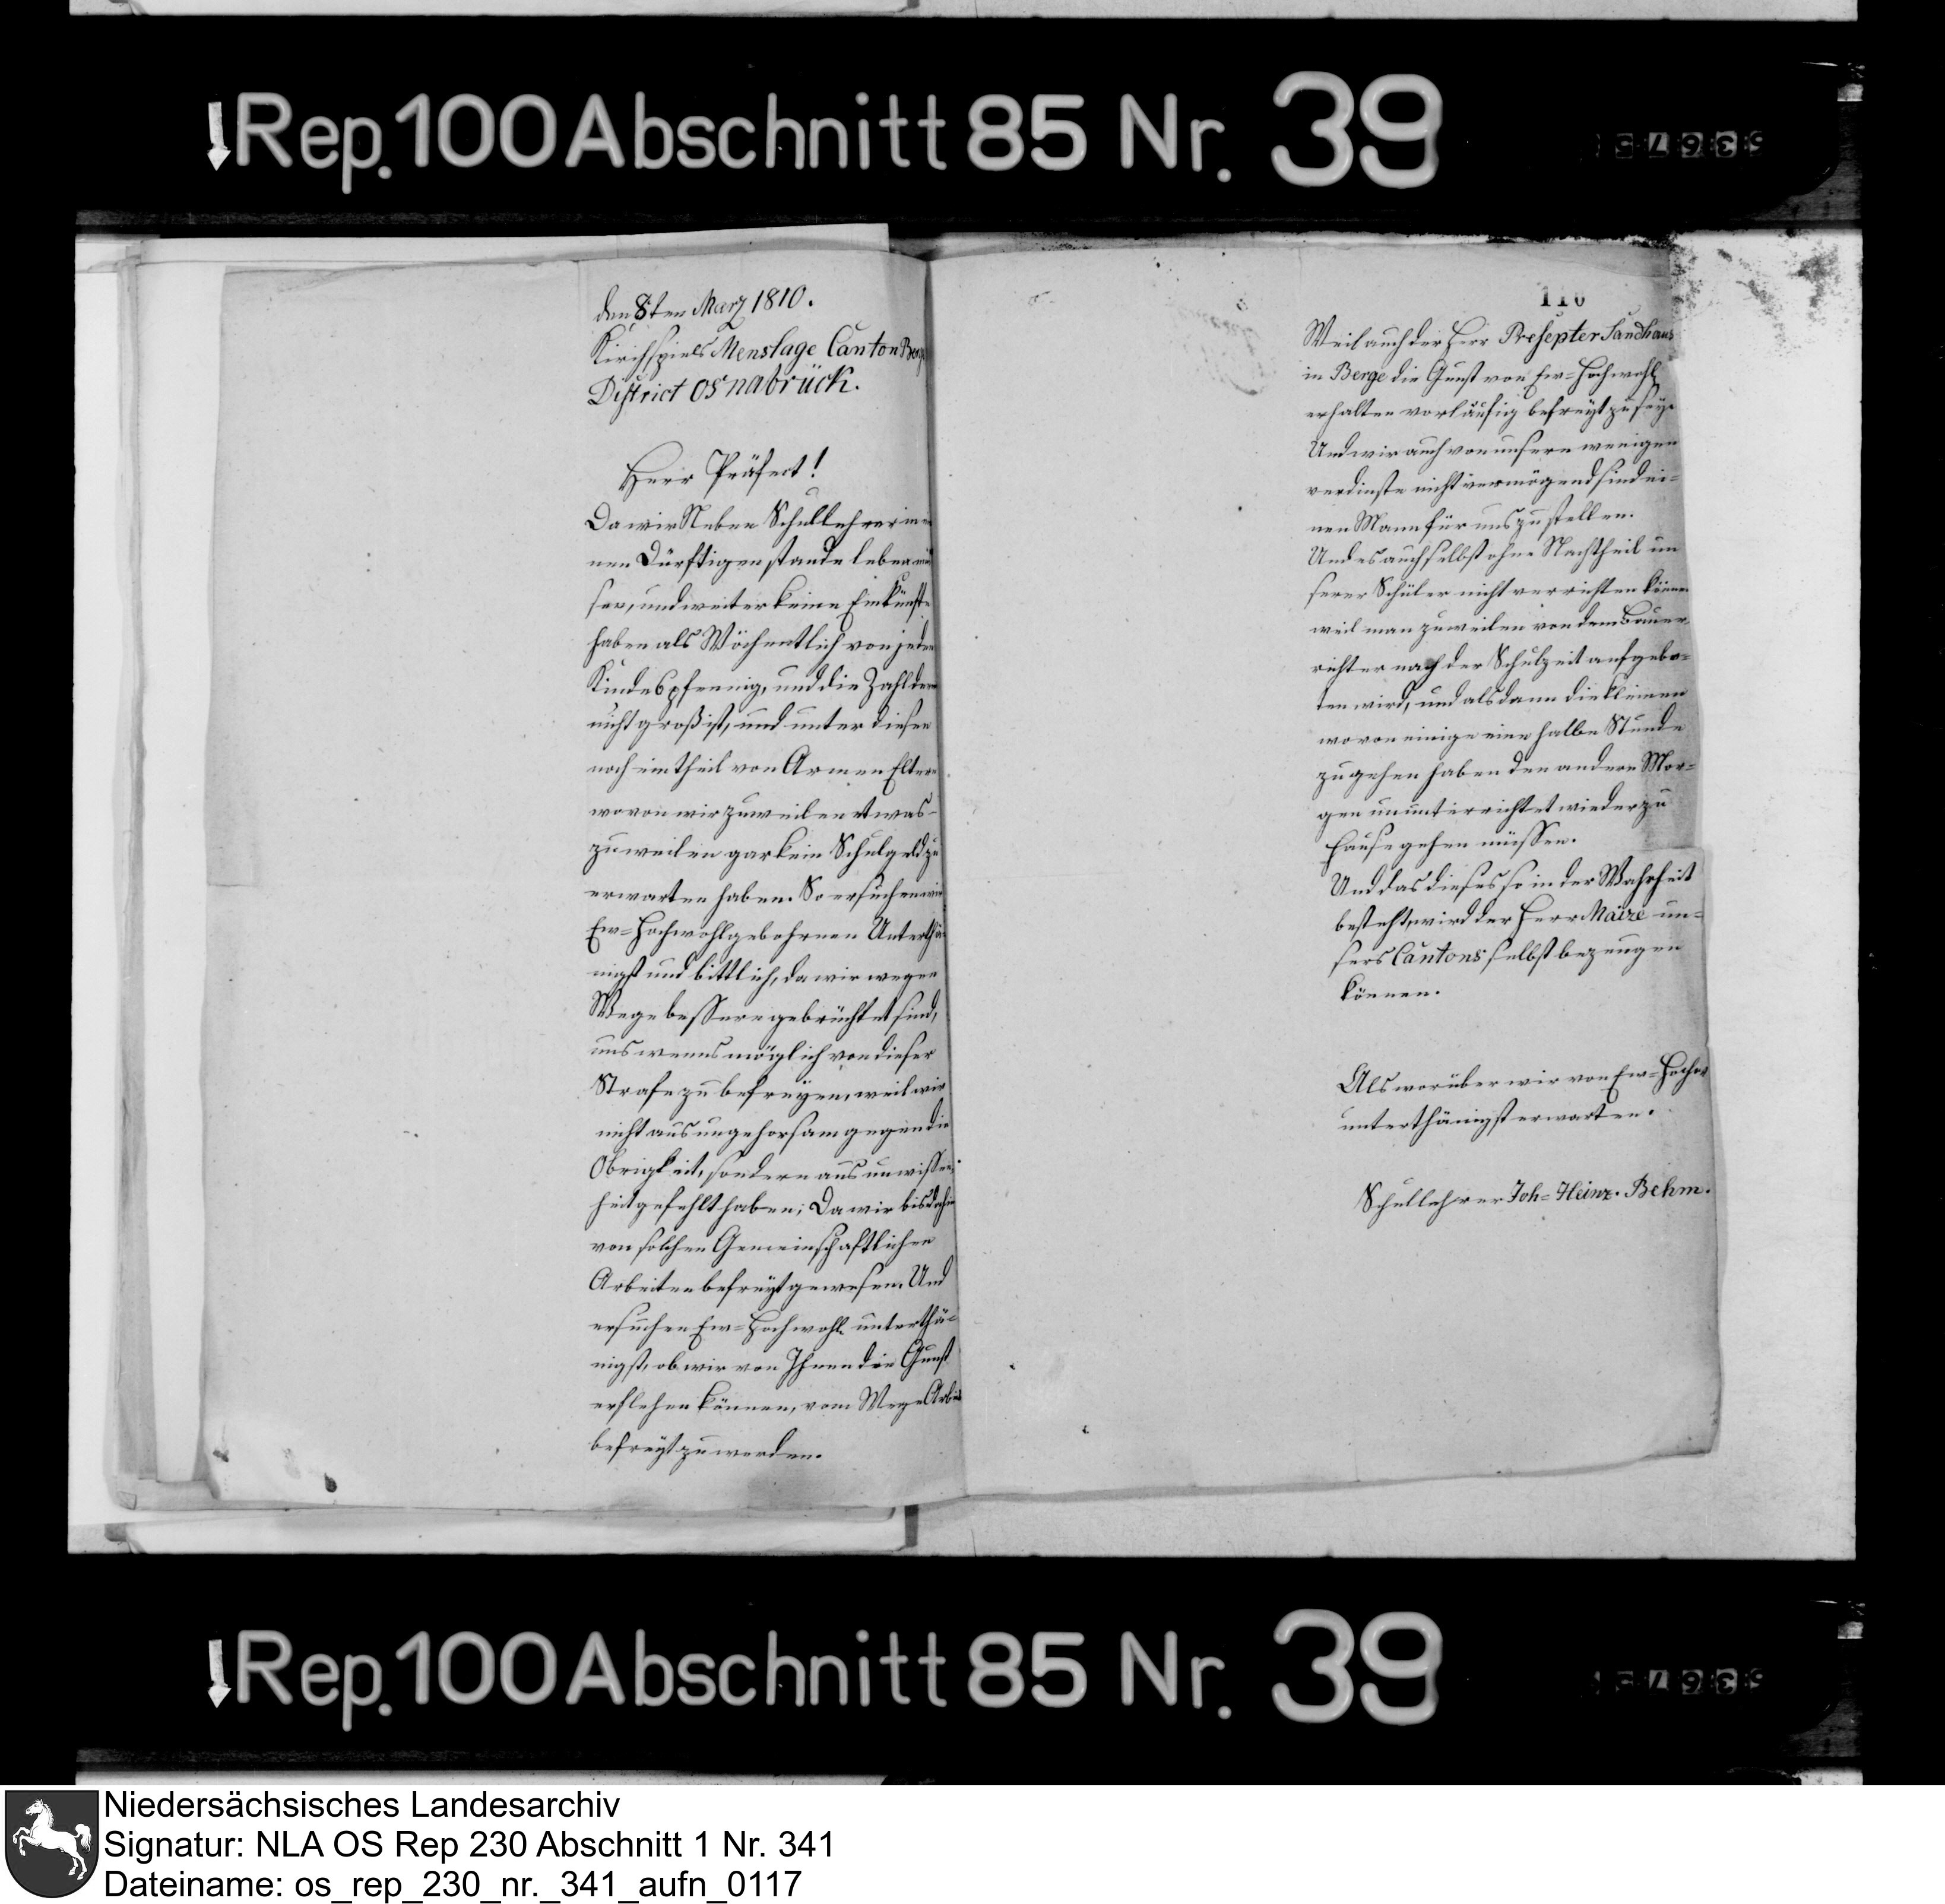 Rep. 100 Abschnitt 85 Nr. 39
den 8ten Marz 1810.
Kirchspiels Menslage Canton Berge
District Osnabrück.
Herr Präfect!
Da wir Neben Schullehrer in ei
nen Dürftigen stande leben müs
sen, und weiter keine Einkünfte
haben als Wöchentlich von jeden
Kindes pfennig, und die Zahl derer
nicht groß ist, und unter diesen
noch ein theil von Armen Eltern
wovon wir zuweilen etwas
zuweilen gar kein Schulgeld zu
erwarten haben. So ersuchen wir
Ew= Hochwohlgebohrnen Unterthä-
nigst und bittlich, da wir wegen
Wege bessern gebrüchtet sind,
uns wenns möglich von dieser
Strafe zu befreyen, weil wir
nicht aus ungehorsam gegen die
Obrigkeit, sondern aus unwissen=
heit gefehlt haben; Da wir bisdahin
von solchen Gemeinschaftlichen
Arbeiten befreyt gewesen. Und
ersuchen Ew= Hochwohl. unterthä=
nigst, ob wir von Ihnen die Gunst
erflehen können, vom Wege Arbeit
befreyt zu werden.
110
Weil auch der Herr Presepter Sandhaus
in Berge die Gunst von Ew= Hochwohl
erhalten vorläufig befreyt zu seyn
Und wir auch von unsern wenigen
verdienste nicht vermögend sind ei=
nen Mann für uns zu stellen.
Und es auch selbst ohne Nachtheil un
serer Schüler nicht verrichten können
weil man zuweilen von dem Bauer
richter nach der Schulzeit aufgebo=
ten wird, und alsdann die kleinen
wovon einige eine halbe Stunde
zu gehen haben den andern Mor=
gen ununterrichtet wieder zu
Hause gehen müssen.
Und das dieses so in der Wahrheit
besteht, wird der Herr Maire un=
sers Cantons selbst bezeugen
können.
Als worüber wir von Ew= Hochw
unterthänigst erwarten.
Schullehrer Joh= Heinr. Behm.
Rep. 100 Abschnitt 85 Nr. 39
Niedersächsisches Landesarchiv
Signatur: NLA OS Rep 230 Abschnitt 1 Nr. 341
Dateiname: os_rep_230_nr._341_aufn_0117